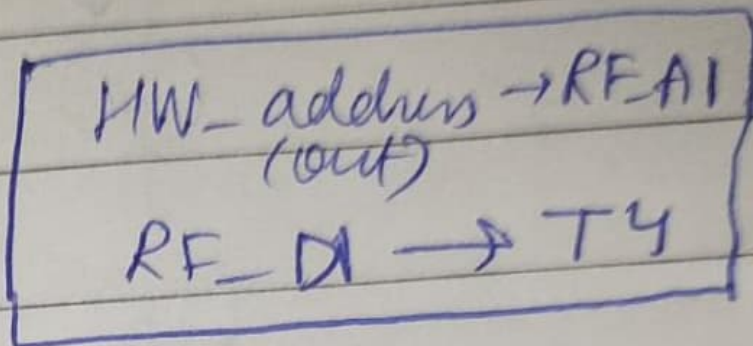 HW_address → RF_A1
(out)
RF_D1 → T4